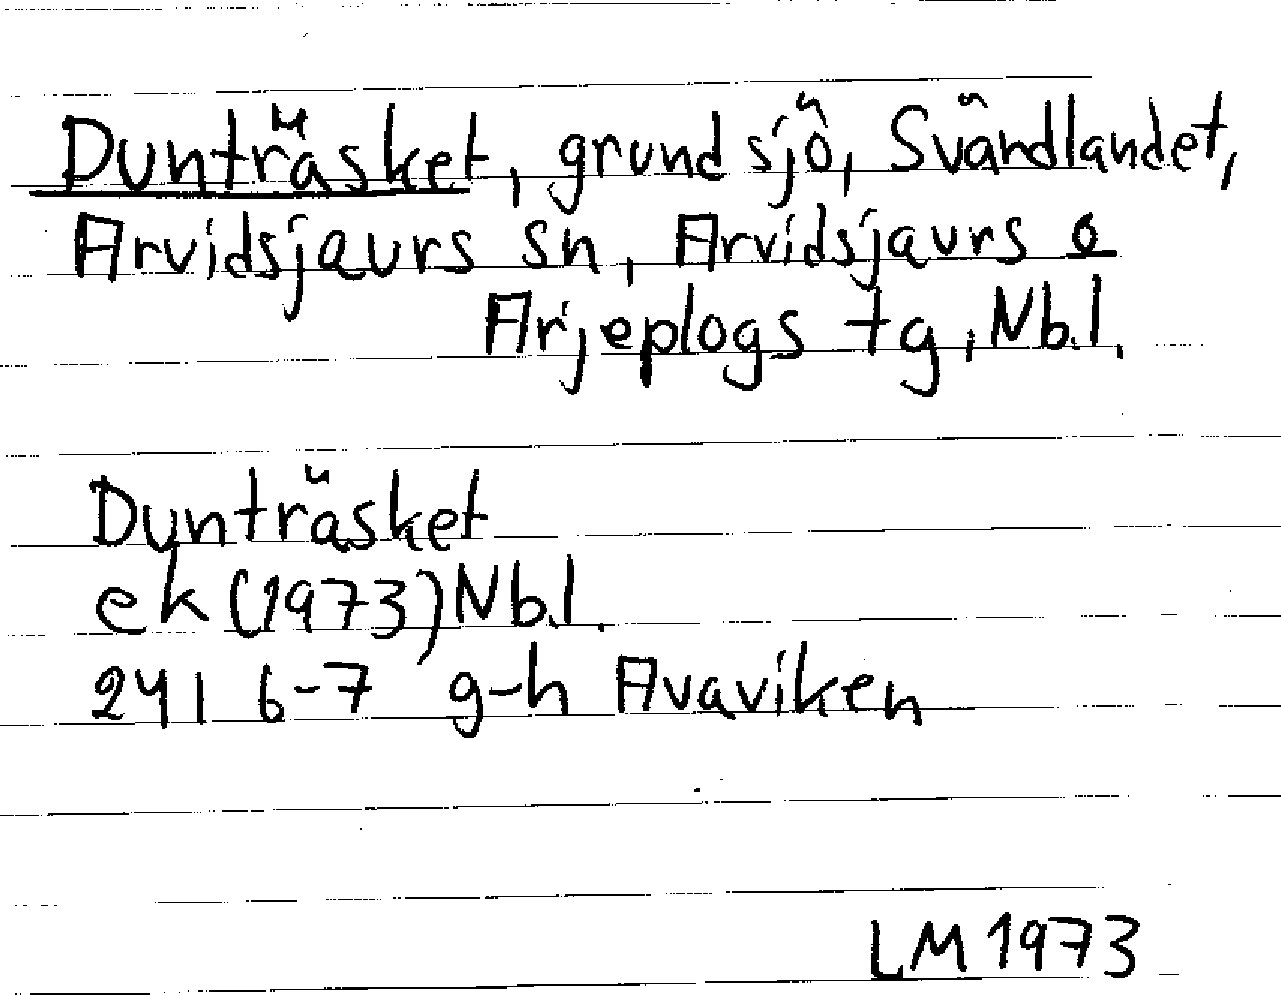 Dunträsket, grund sjö, Svärdlandet,
Arvidsjaurs sn, Arvidsjaurs o
Arjeplogs tg, Nb.l.
Dunträsket
ek (1973) Nb.l.
24 I 6-7 g-h Avaviken
LM 1973